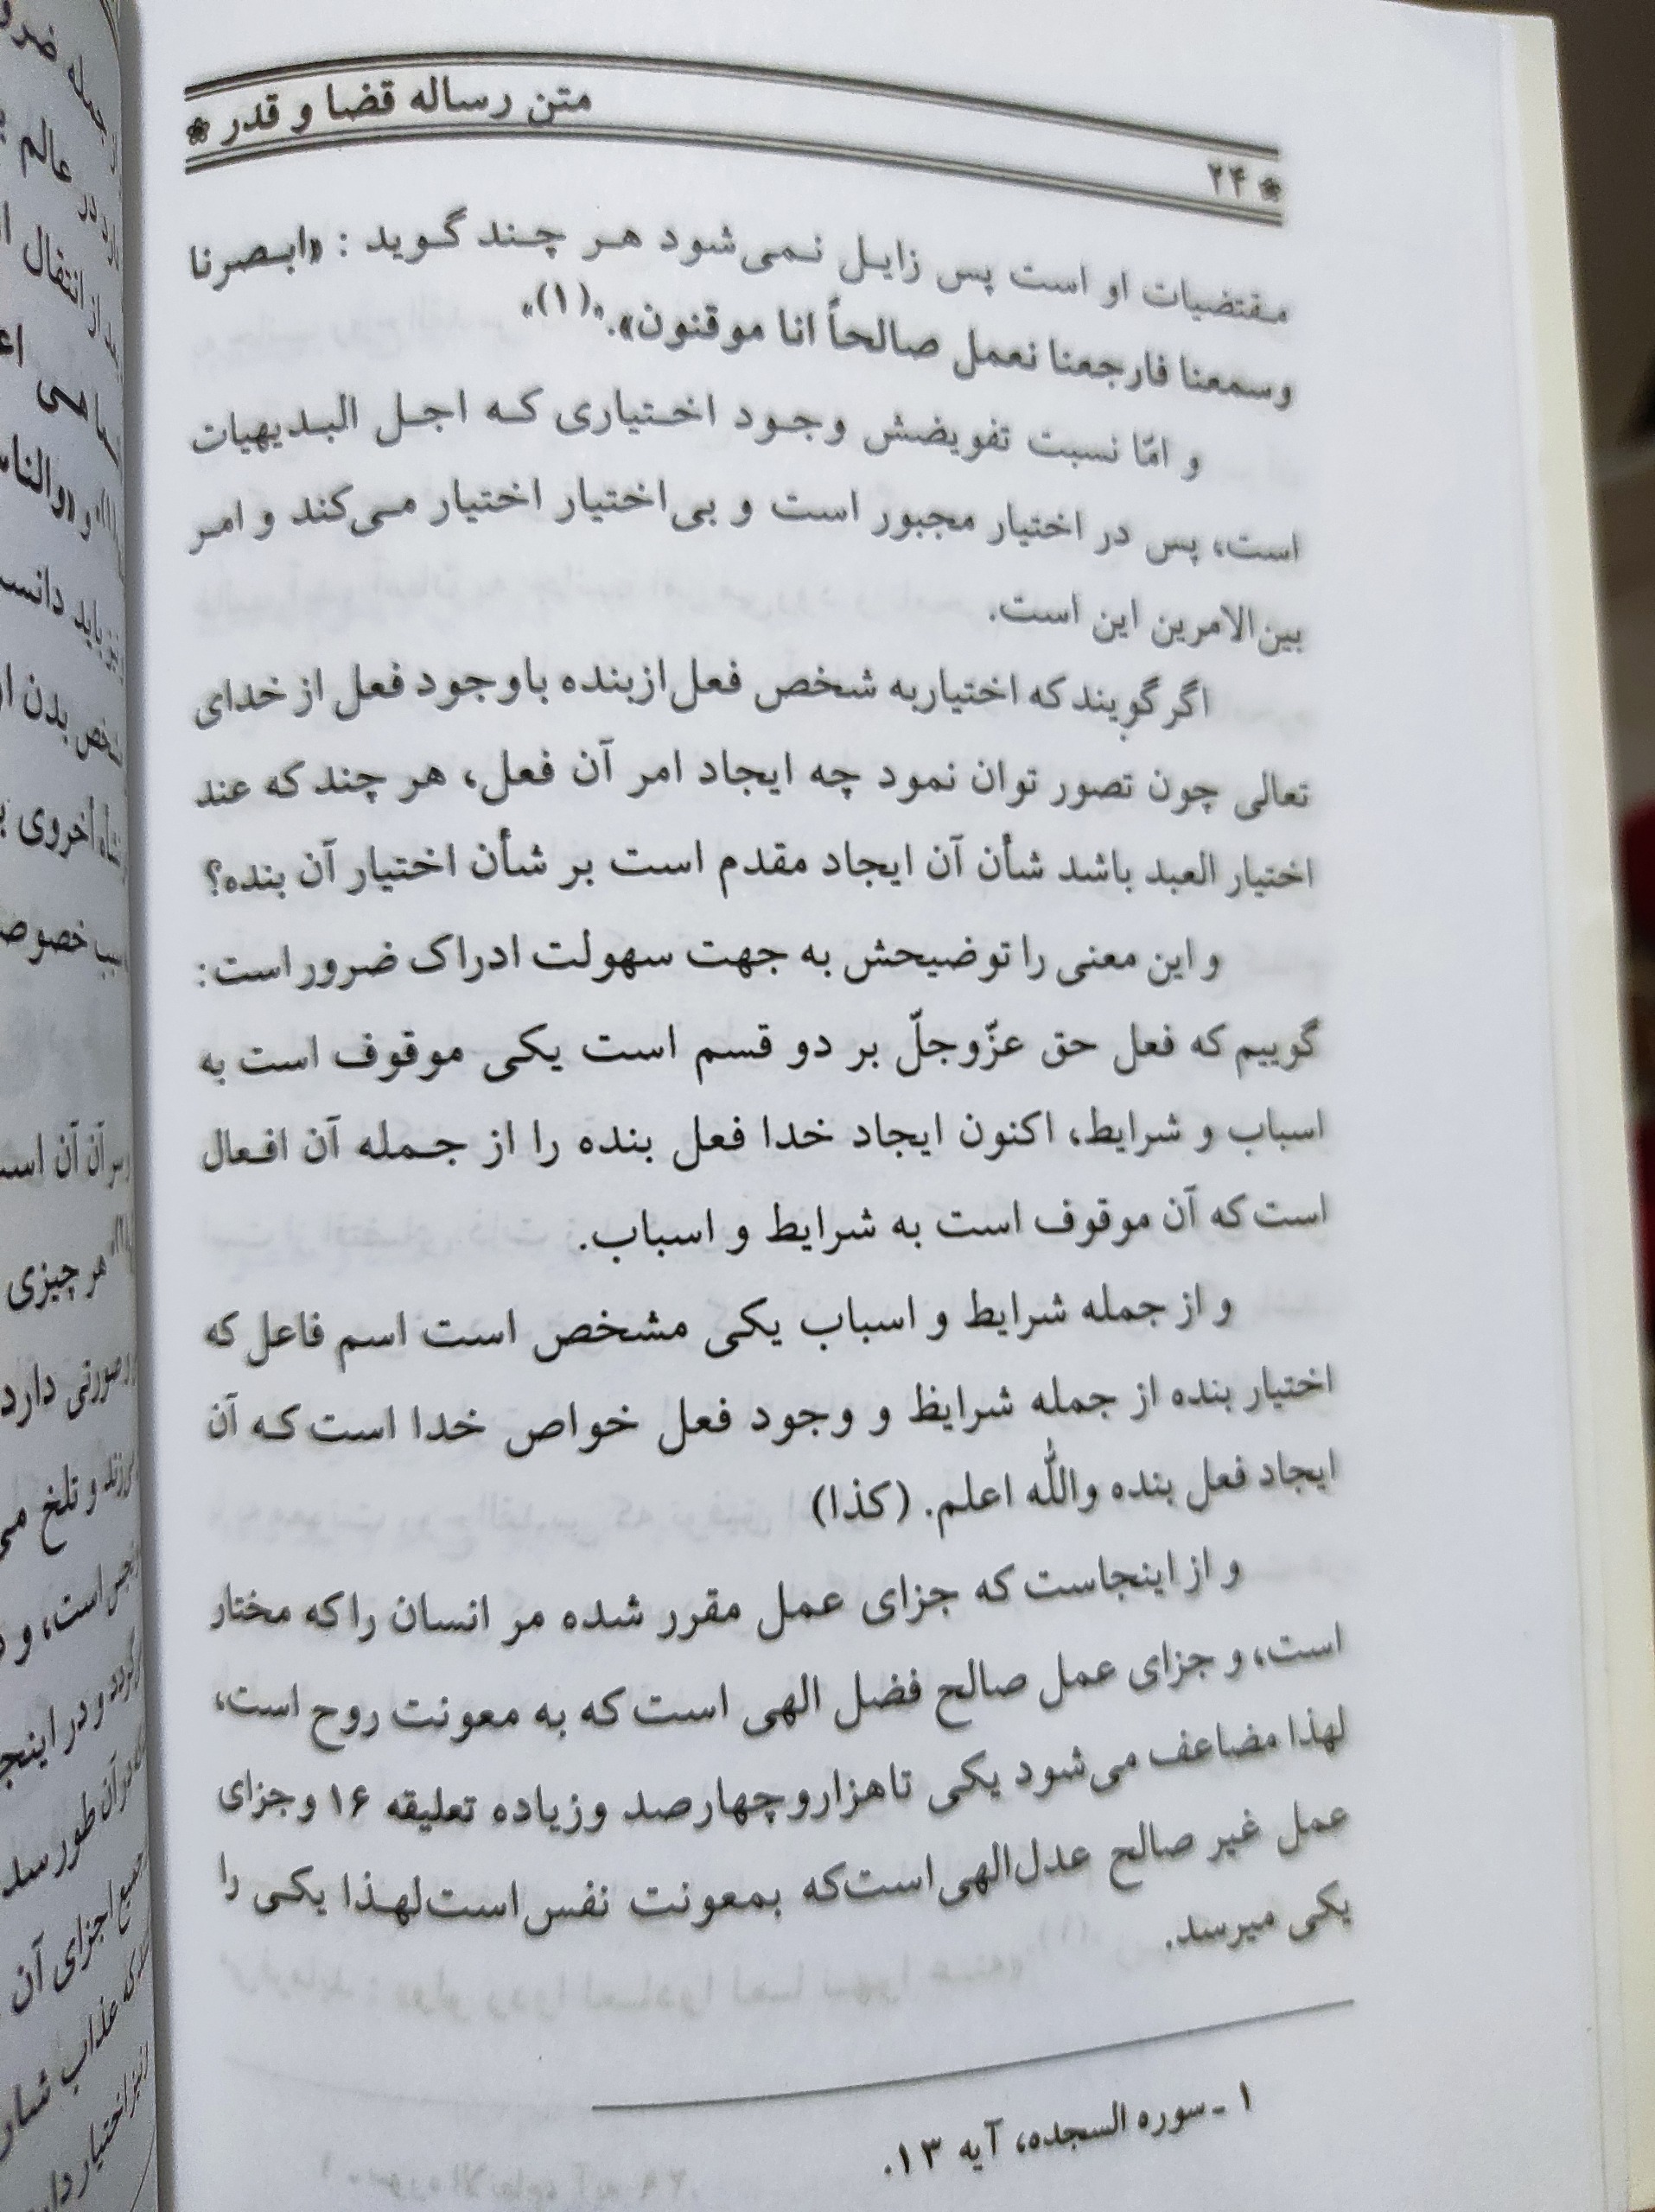 * ۲۴ متن رساله قضا و قدر *
مقتضیات او است پس زایل نمی‌شود هر چند گوید : «ابصرنا
وسمعنا فارجعنا نعمل صالحاً انا موقنون».«(۱)»
و امّا نسبت تفویضش وجود اختیاری که اجل البدیهیات
است، پس در اختیار مجبور است و بی‌اختیار اختیار می‌کند و امر
بین‌الامرین این است.
اگر گویند که اختیار به شخص فعل از بنده با وجود فعل از خدای
تعالی چون تصور توان نمود چه ایجاد امر آن فعل، هر چند که عند
اختیار العبد باشد شأن آن ایجاد مقدم است بر شأن اختیار آن بنده؟
و این معنی را توضیحش به جهت سهولت ادراک ضرور است:
گوییم که فعل حق عزّوجلّ بر دو قسم است یکی موقوف است به
اسباب و شرایط، اکنون ایجاد خدا فعل بنده را از جمله آن افعال
است که آن موقوف است به شرایط و اسباب.
و از جمله شرایط و اسباب یکی مشخص است اسم فاعل که
اختیار بنده از جمله شرایظ و وجود فعل خواص خدا است که آن
ایجاد فعل بنده والله اعلم. (کذا)
و از اینجاست که جزای عمل مقرر شده مر انسان را که مختار
است، و جزای عمل صالح فضل الهی است که به معونت روح است،
لهذا مضاعف می‌شود یکی تا هزار و چهارصد و زیاده تعلیقه ۱۶ و جزای
عمل غیر صالح عدل الهی است که بمعونت نفس است لهذا یکی را
یکی میرسد.
۱ - سوره السجده، آیه ۱۳.